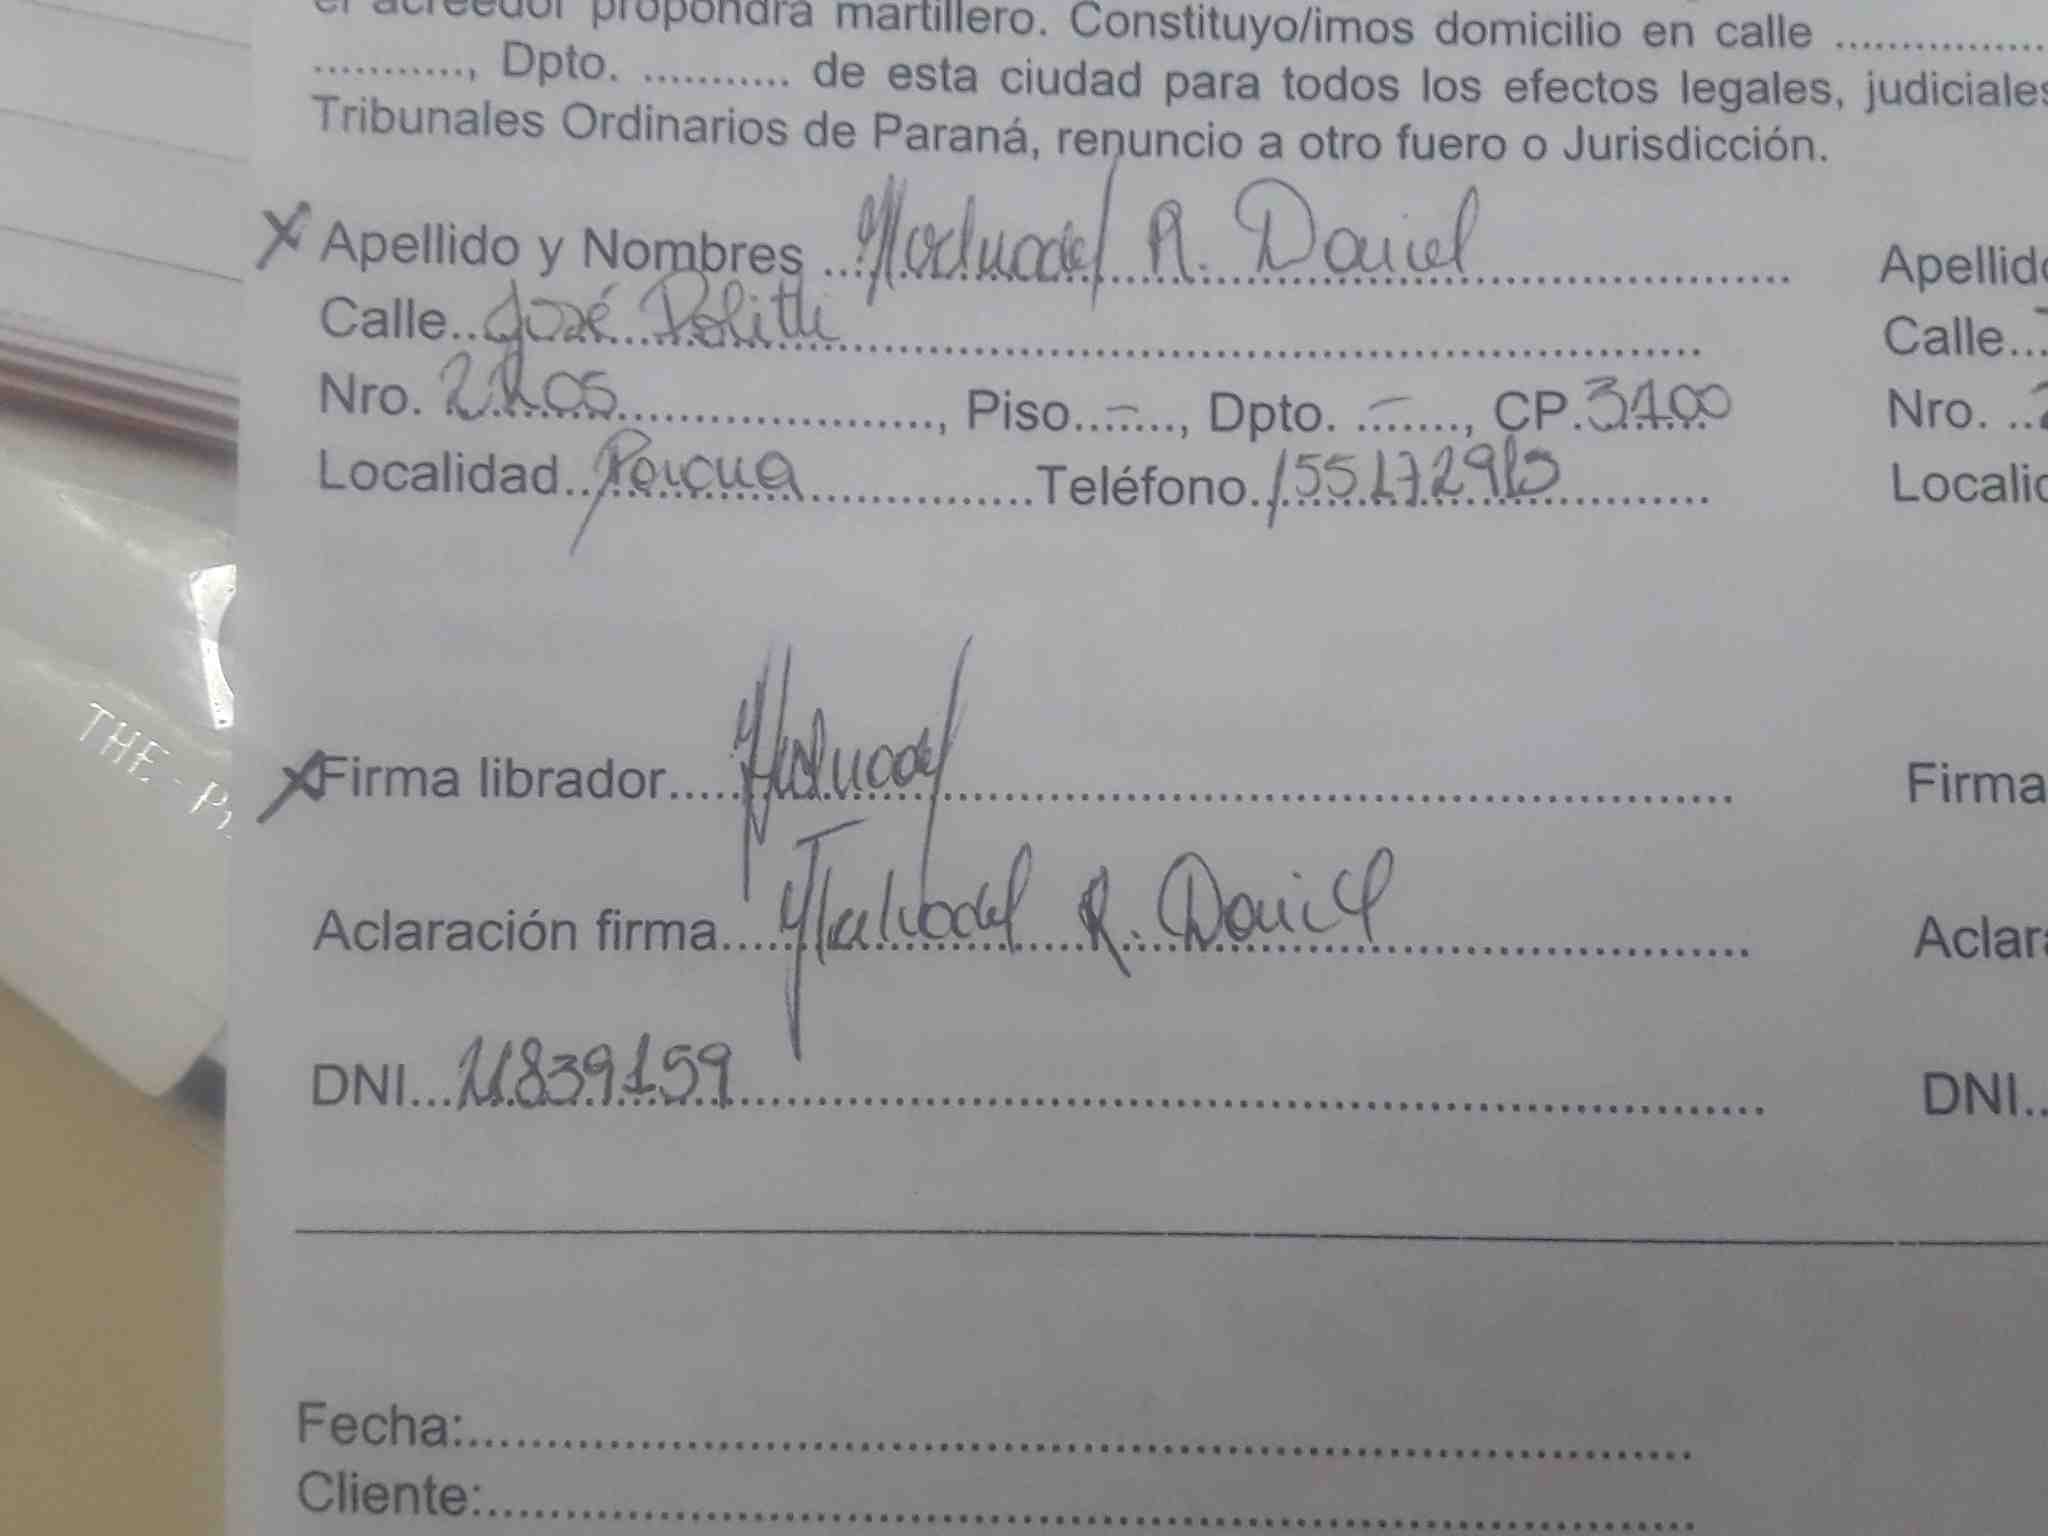 el acreedor propondrá martillero. Constituyo/imos domicilio en calle ..................
............, Dpto. ........... de esta ciudad para todos los efectos legales, judiciales
Tribunales Ordinarios de Paraná, renuncio a otro fuero o Jurisdicción.
X Apellido y Nombres ... R. Daniel ........ Apellido
Calle.. José Politti ........ Calle...
Nro. 2205 ........, Piso..-...., Dpto. .-....., CP.3100 Nro. ..2
Localidad.. Parana ........Teléfono. 155172913 ........ Localid
X Firma librador........ Firma
Aclaración firma..... R. Daniel ........ Aclara
DNI... 21839159 ........ DNI..
Fecha:........
Cliente:........
THE - P